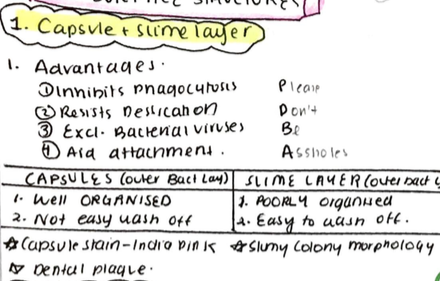 1. Capsule + slime layer
1. Advantages.
① Inhibits phagocytosis Please
② Resists Desiccation Don't
③ Excl. Bacterial viruses Be
④ Aid attachment. Assholes
CAPSULES (outer Bact Lay) SLIME LAYER (outer bact
1. Well ORGANISED 1. POORLY organised
2. Not easy wash off 2. Easy to wash off.
☆ Capsule stain - India pink ☆ Slumy Colony morphology
Dental plaque.